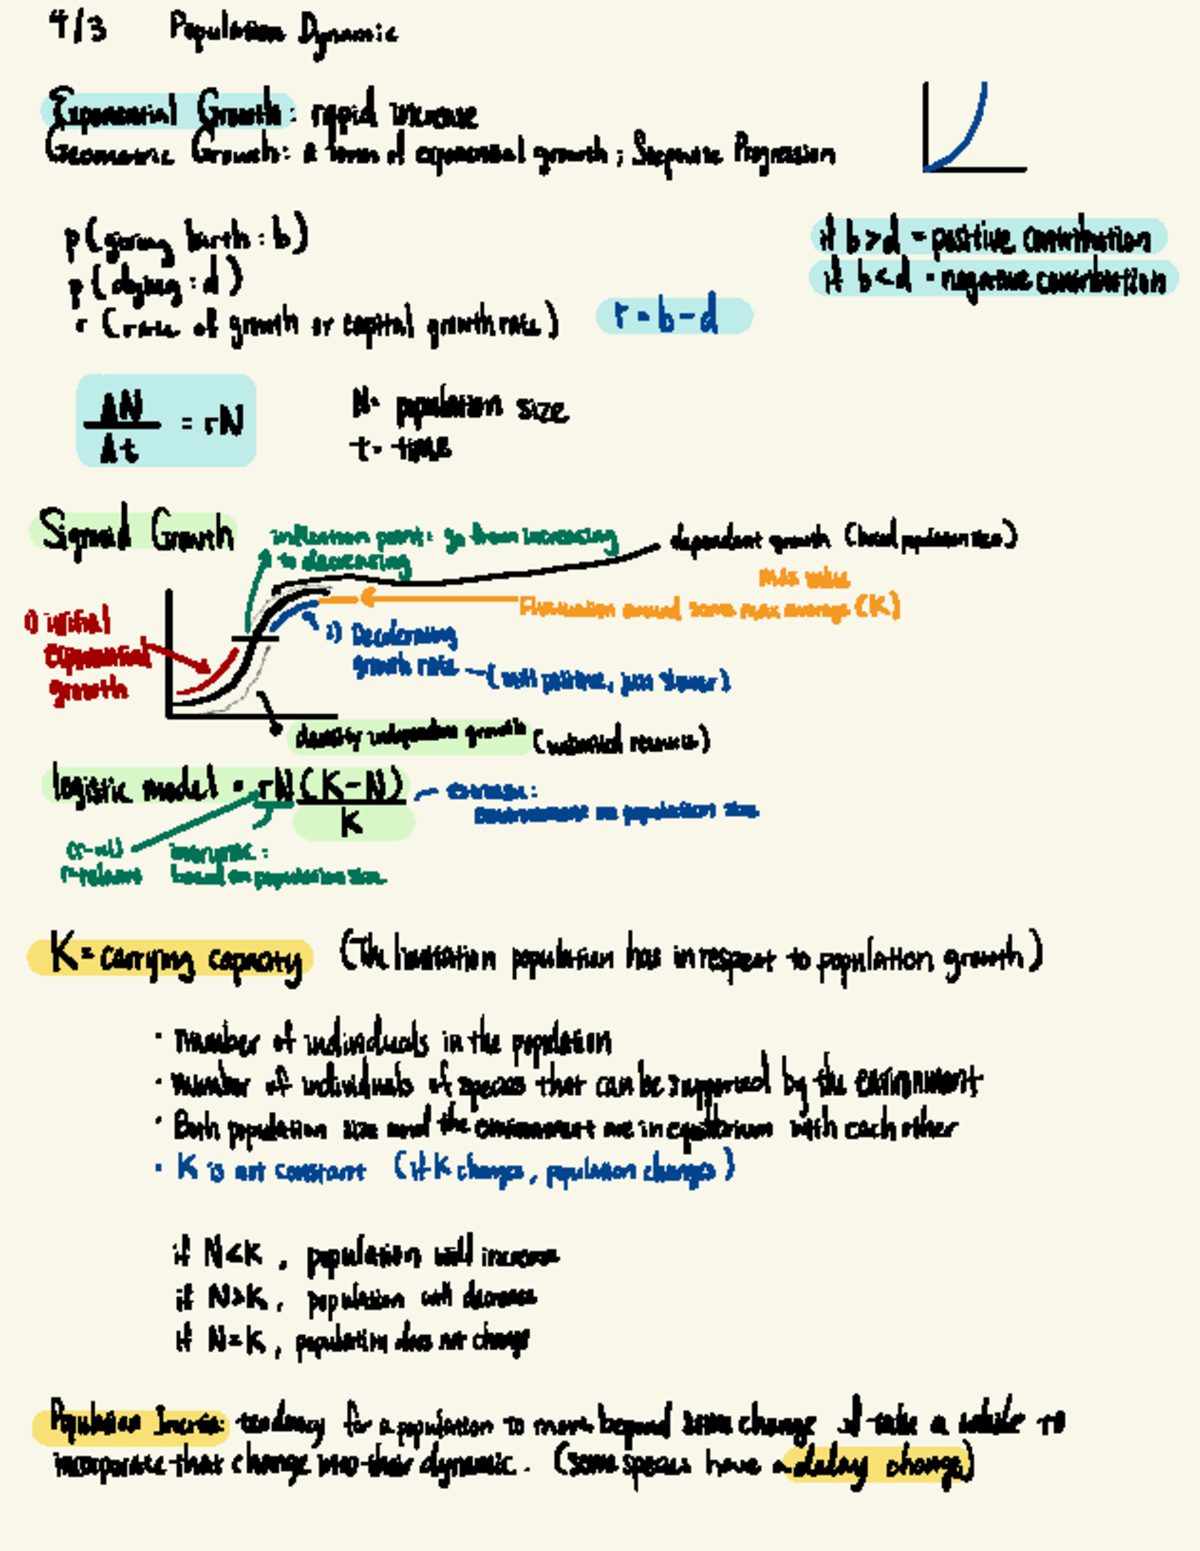 4/3 Population Dynamic
Exponential Growth: rapid increase
Geometric Growth: a form of exponential growth; Stepwise Progression
p(giving birth: b)
p(dying: d)
r (rate of growth or capital growth rate) r = b-d
if b>d - positive contribution
if b<d - negative contribution
ΔN/Δt = rN
N= population size
t= time
Sigmoid Growth
inflection point: go from increasing
to decreasing
dependent growth
max value
Fluctuation around some max average (K)
1) initial
exponential
growth
2) Decelerating
growth rate - (still positive, just slower)
density independent growth
logistic model = rN(K-N)
K
extrinsic:
environment on population size
intrinsic:
based on population size
K= carrying capacity (The limitation population has in respect to population growth)
· number of individuals in the population
· number of individuals of species that can be supported by the environment
· Both population size and the environment are in equilibrium with each other
· K is not constant (if K changes, population changes)
if N<K, population will increase
if N>K, population will decrease
if N=K, population does not change
Population Inertia: tendency for a population to move beyond some change. It take a while to
incorporate that change into their dynamic. (some species have a delay change)